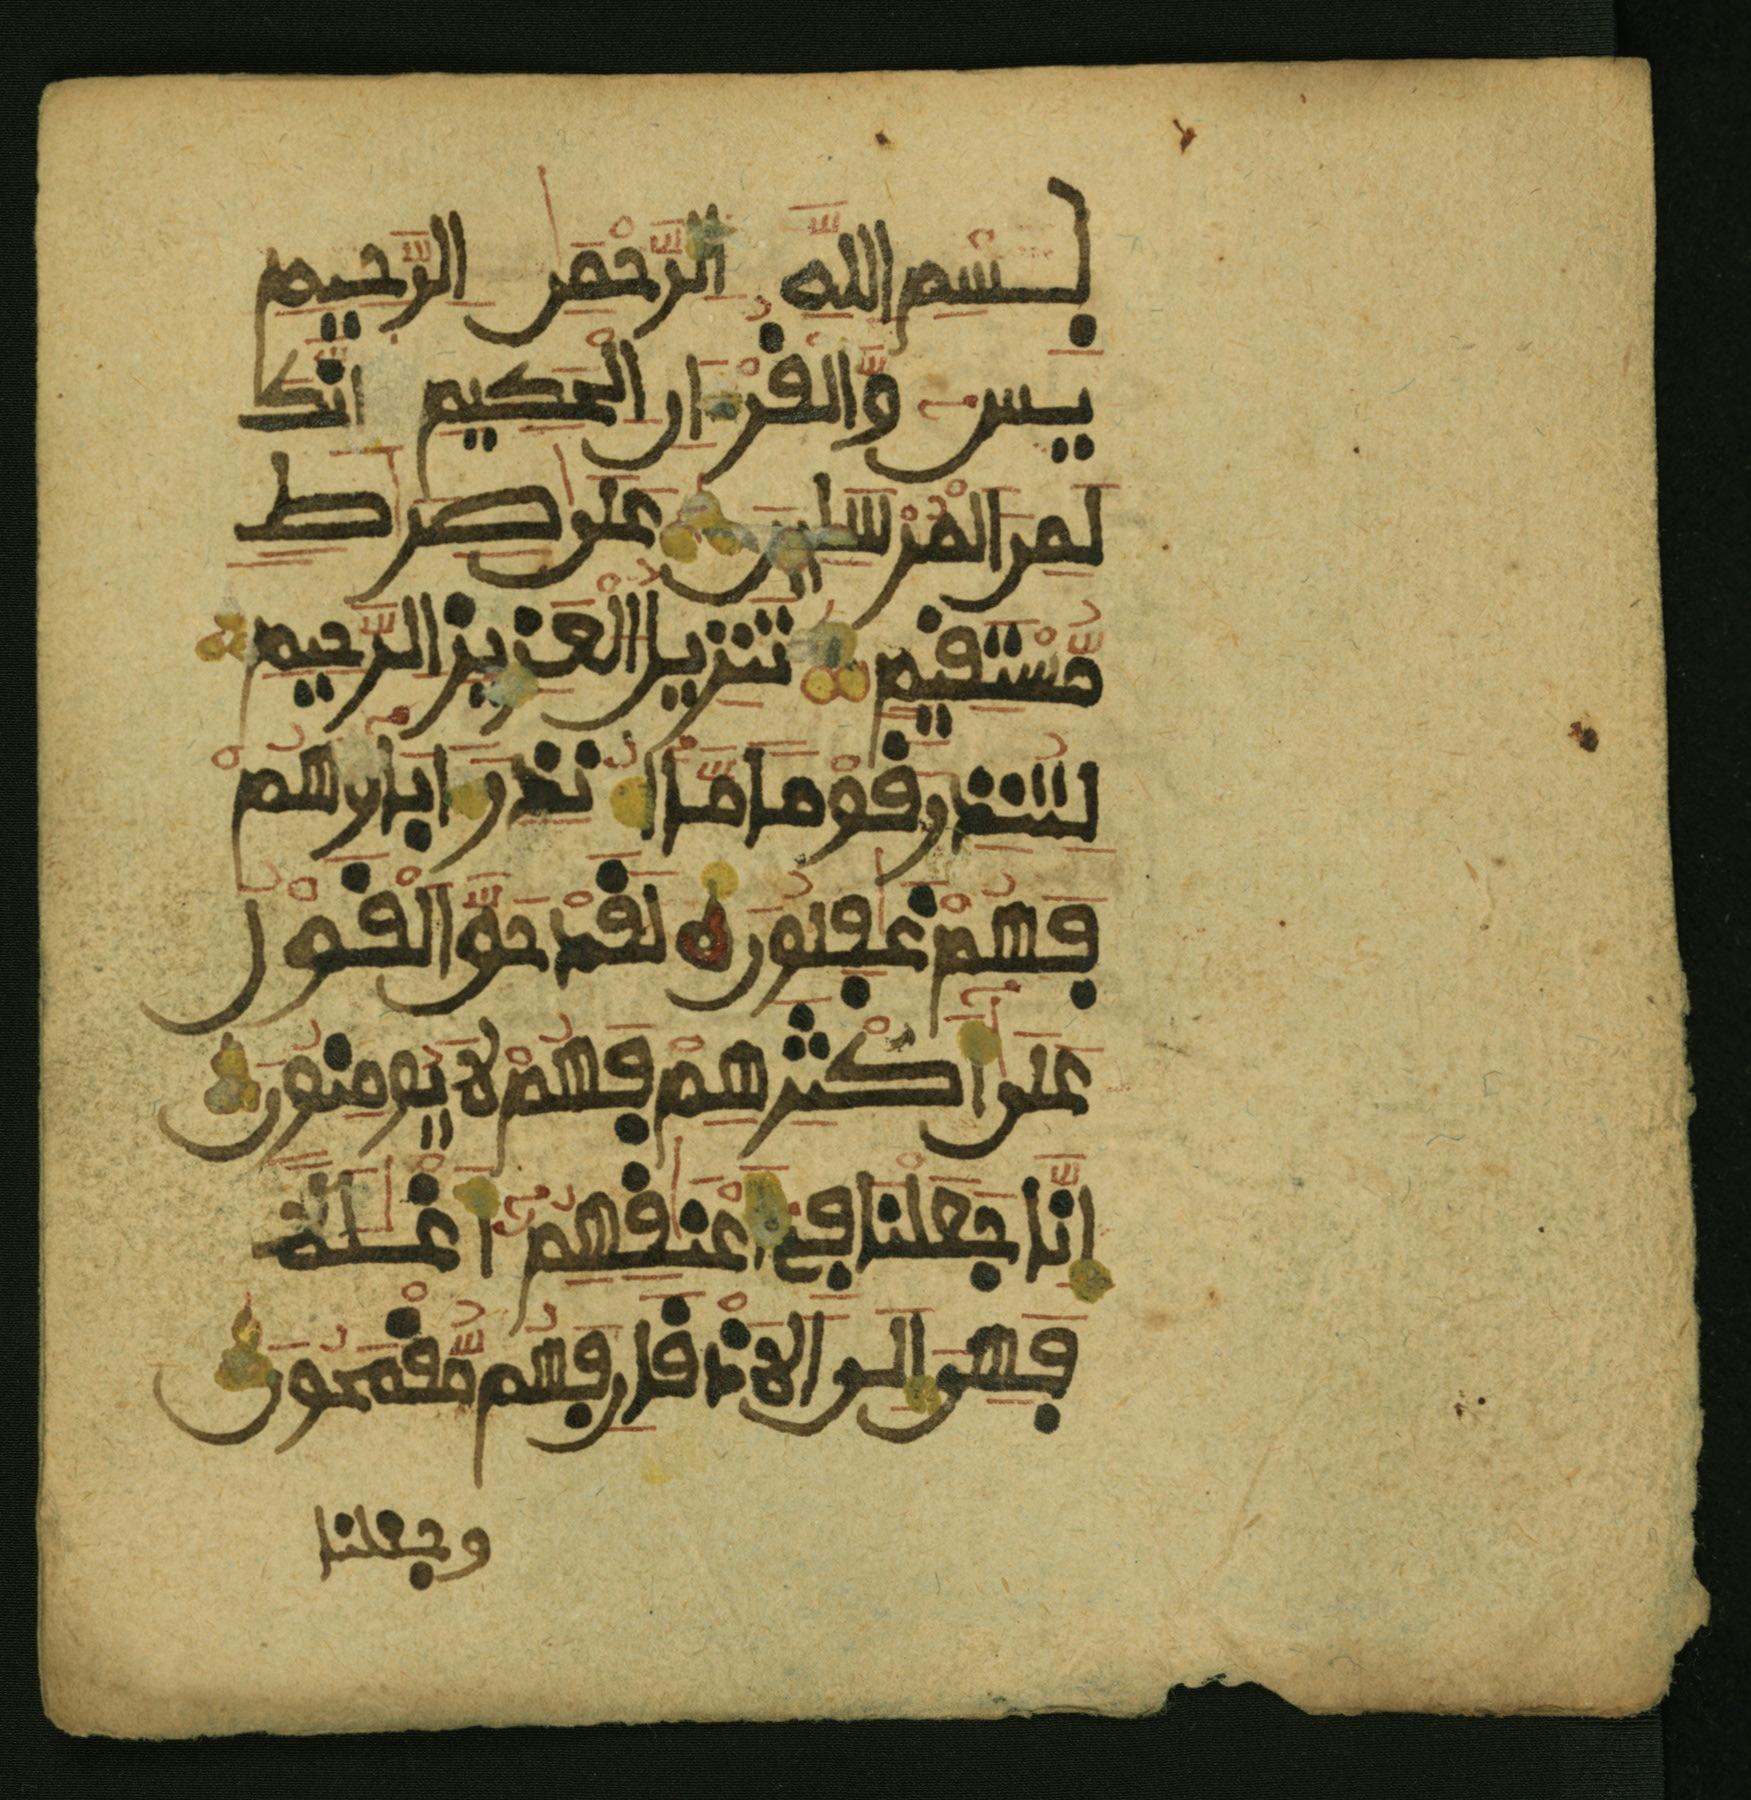 بسم الله الرحمن الرحيم
يس والقرءان الحكيم انك
لمن المرسلين على صرط
مستقيم تنزيل العزيز الرحيم
لتنذر قوما ما انذر اباؤهم
فهم غفلون لقد حق القول
على اكثرهم فهم لا يومنون
انا جعلنا في اعنقهم اغللا
فهى الى الاذقان فهم مقمحون
وجعلنا